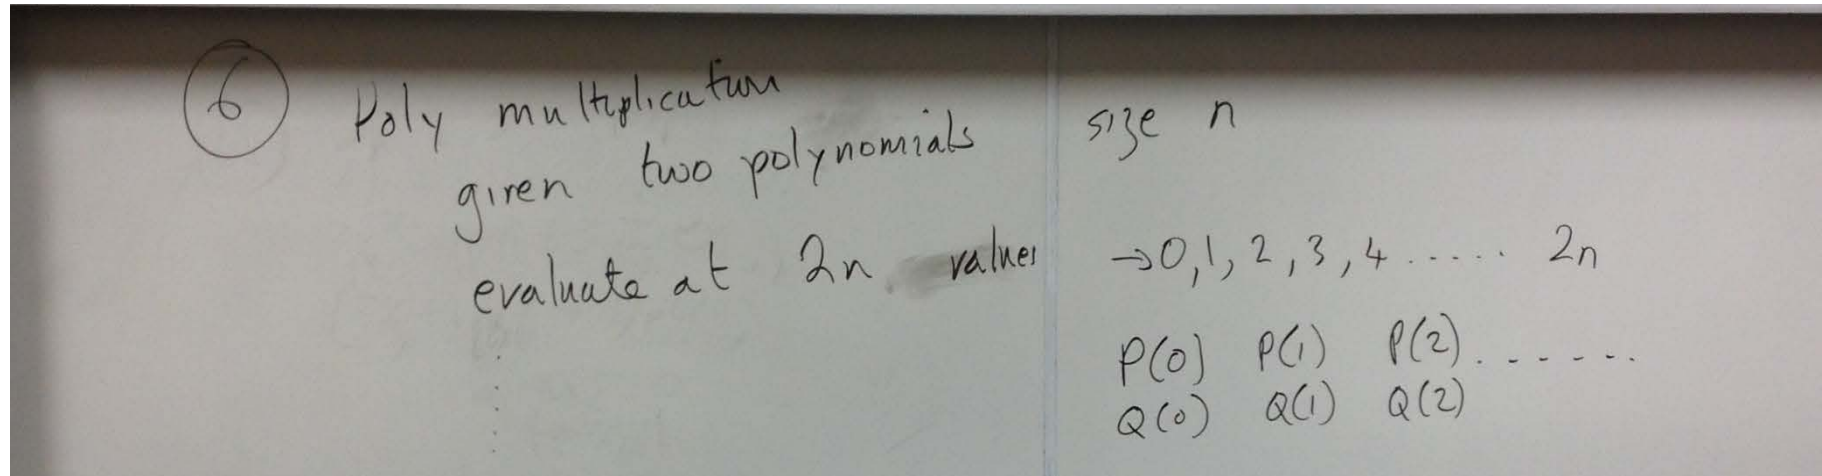 6 Poly multiplication
given two polynomials size n
evaluate at 2n values →0,1,2,3,4..... 2n
P(0) P(1) P(2).......
Q(0) Q(1) Q(2)